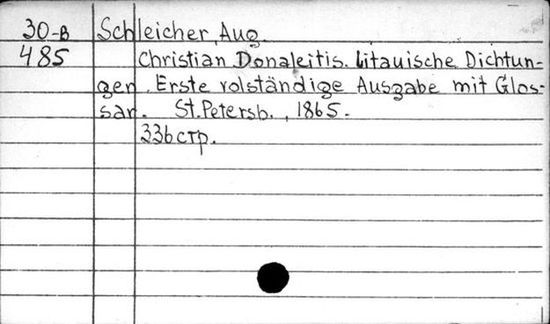 30-B Schleicher, Aug.
485 Christian Donaleitis. Litauische Dichtun-
gen. Erste volständige Ausgabe mit Glos-
sar. St. Petersb., 1865.
336 стр.